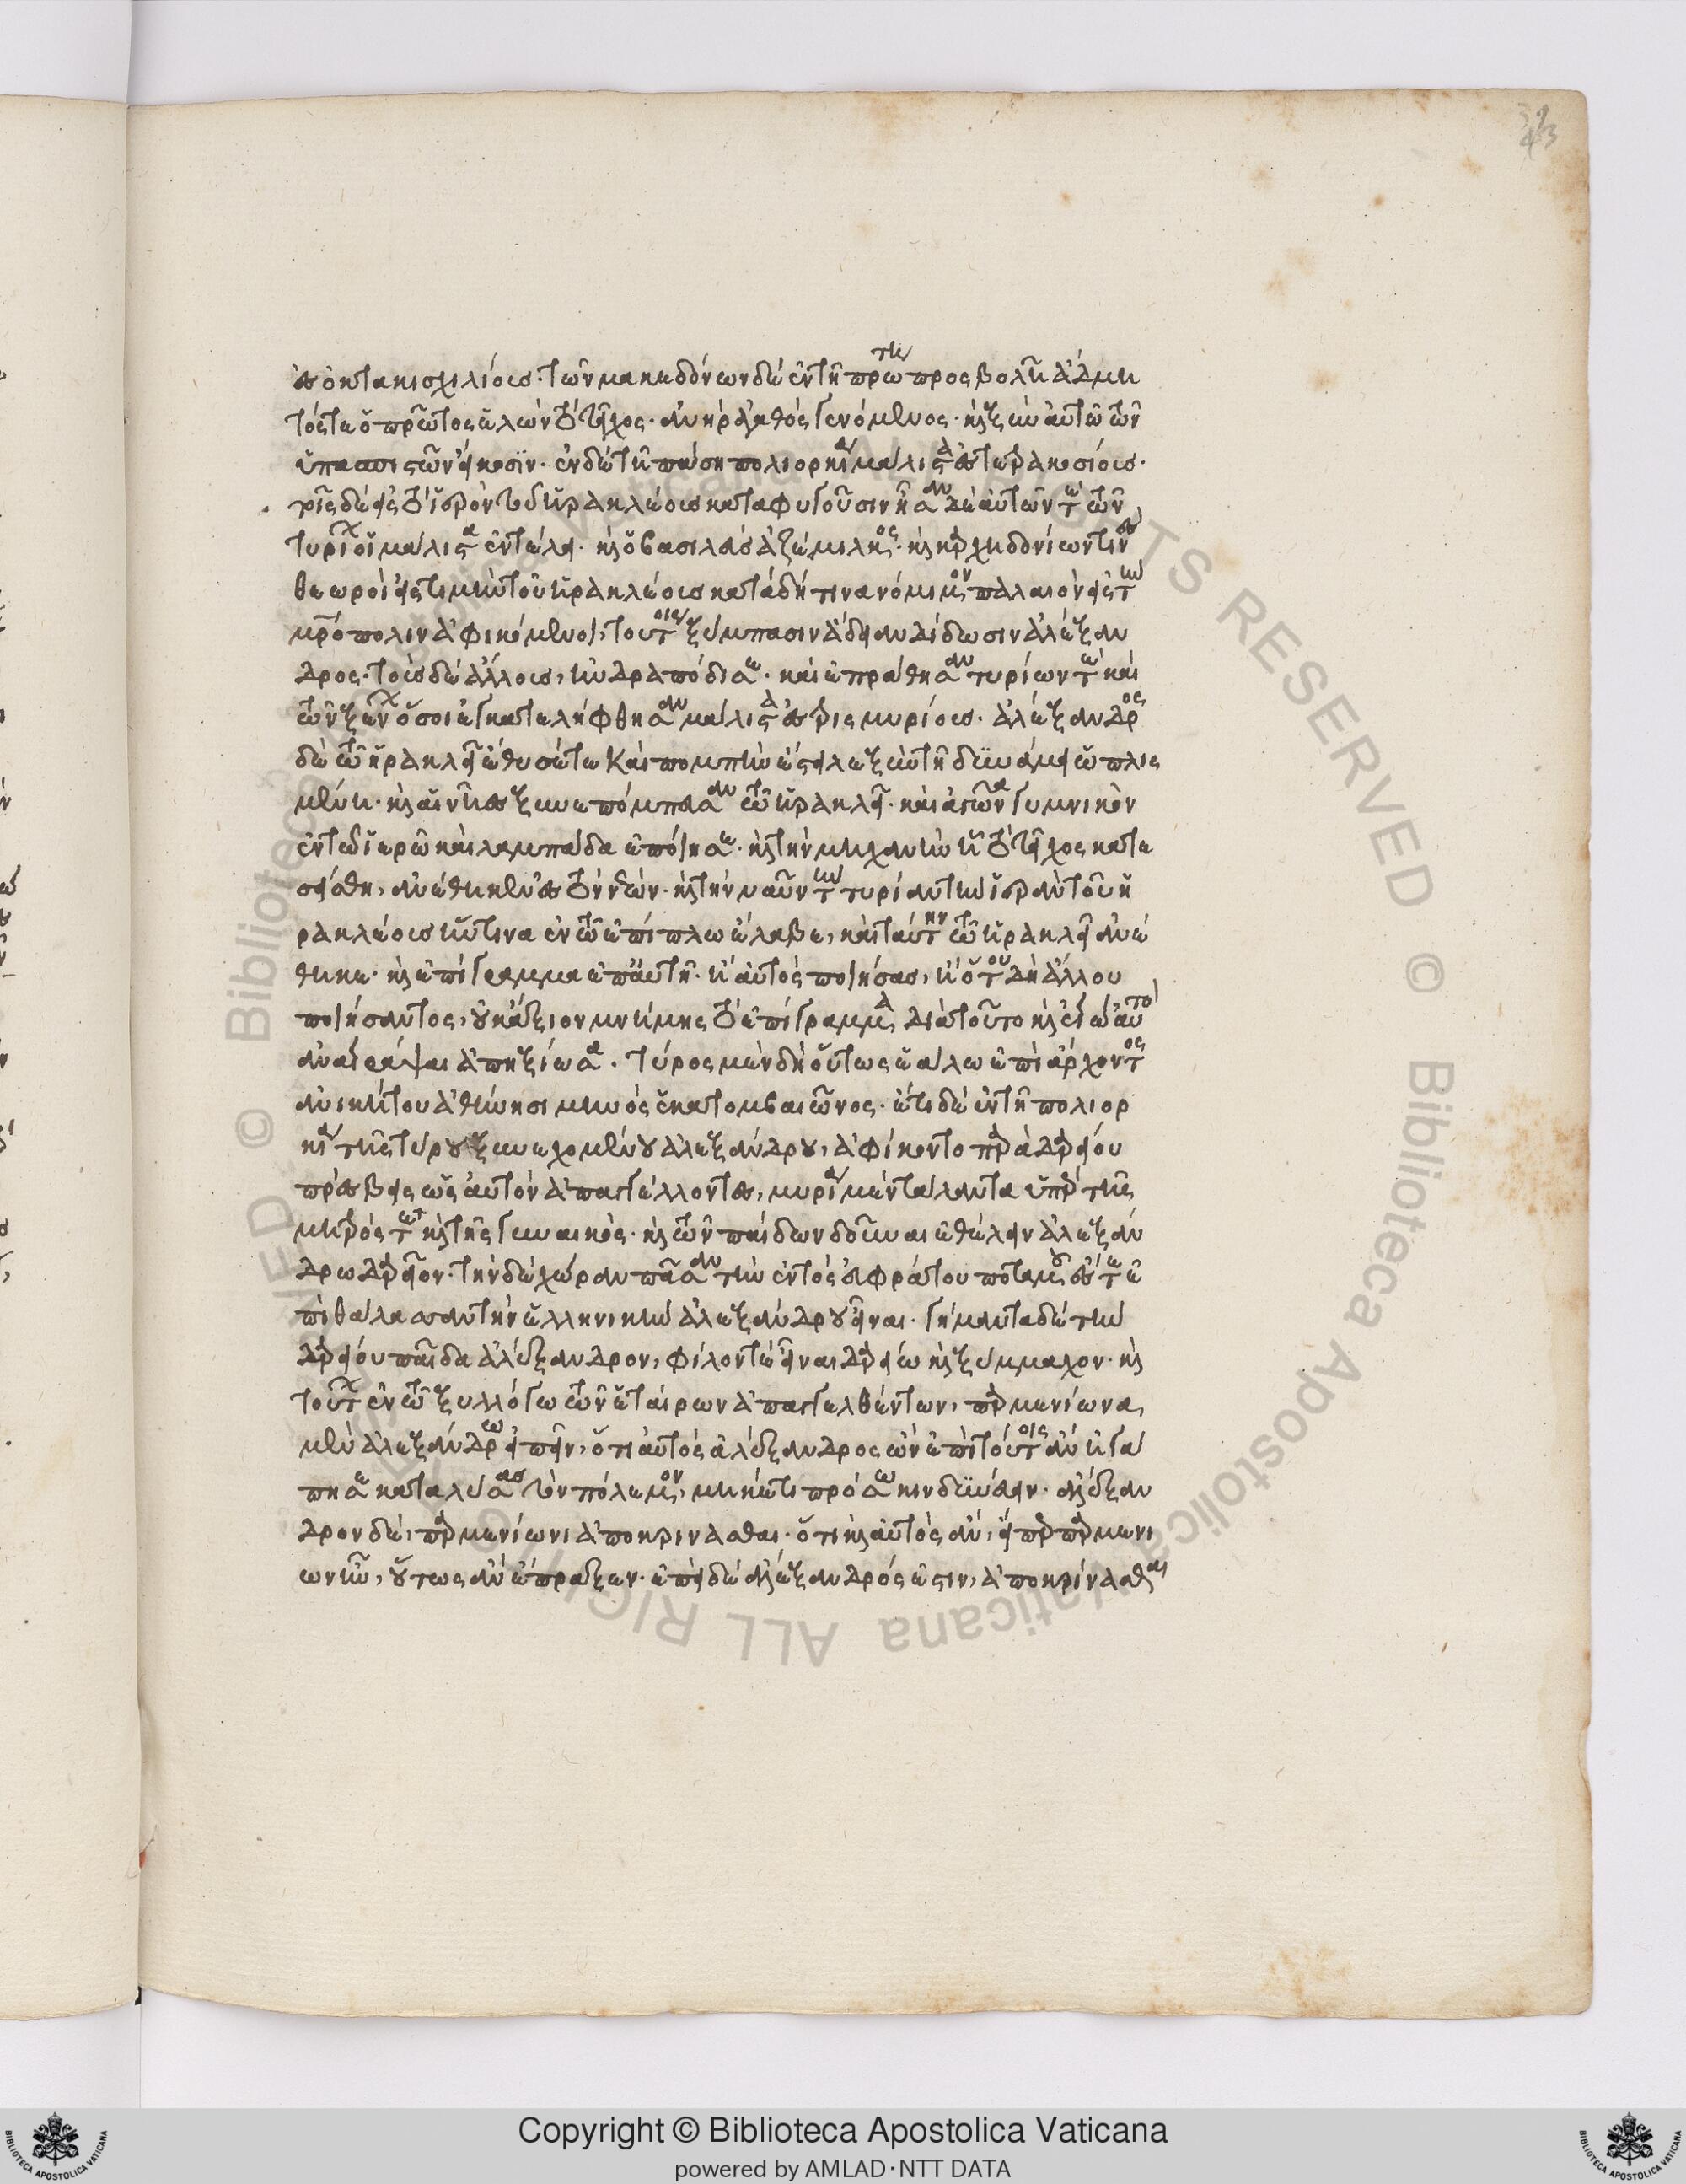 ἐς ὀκτακισχιλίους· τῶν μακεδόνων δὲ ἐν τῇ πρώτῃ προςβολῇ ἄδμη
τός τε ὁ πρῶτος ἑλὼν τὸ τεῖχος· ἀνὴρ ἀγαθὸς γενόμενος· καὶ ξὺν αὐτῷ τῶν
ὑπασπιστῶν εἴκοσιν· ἐν δὲ τῇ πάσῃ πολιορκίᾳ μάλιστα ἐς τετρακοσίους·
τοῖς δὲ εἰς τὸ ἱερὸν τοῦ ἡρακλέους καταφυγοῦσιν ἦσαν δὲ αὐτῶν τε τῶν
τυρίων οἱ μάλιστα ἐν τέλει· καὶ ὁ βασιλεὺς ἀζέμιλκος· καὶ καρχηδονίων τινὲς
θεωροὶ εἰς τιμὴν τοῦ ἡρακλέους κατὰ δή τινα νόμιμον παλαιὸν εἰς τὴν
μητρόπολιν ἀφικόμενοι, τούτοις ξύμπασιν ἄδειαν δίδωσιν ἀλέξαν
δρος· τοὺς δὲ ἄλλους, ἠνδραπόδισε· καὶ ἐπράθησαν τυρίων τε καὶ
τῶν ξένων ὅσοι ἐγκατελήφθησαν μάλιστα ἐς τρισμυρίους· ἀλέξανδρος
δὲ τῷ ἡρακλεῖ ἔθυσέ τε καὶ πομπὴν ἔστειλε ξὺν τῇ δυνάμει ὡπλισ
μένῃ· καὶ αἱ νῆες ξυνεπόμπευσαν τῷ ἡρακλεῖ· καὶ ἀγῶνα γυμνικὸν
ἐν τῷ ἱερῷ καὶ λαμπάδα ἐποίησε· καὶ τὴν μηχανὴν ᾗ τὸ τεῖχος κατε
σείσθη, ἀνέθηκεν ἐς τὸν νεών· καὶ τὴν ναῦν τὴν τυρίαν τὴν ἱερὰν τοῦ ἡ
ρακλέους ἥντινα ἐν τῷ ἐπίπλῳ ἔλαβε, καὶ ταύτην τῷ ἡρακλεῖ ἀνέ
θηκε· καὶ ἐπίγραμμα ἐπ' αὐτῇ· ἢ αὐτὸς ποιήσας, ἢ ὅτου δὴ ἄλλου
ποιήσαντος, οὐκ ἄξιον μνήμης τὸ ἐπίγραμμα, διὰ τοῦτο καὶ ἐγὼ αὐτὸ
ἀναγράψαι ἀπηξίωσα. τύρος μὲν δὴ οὕτως ἑάλω ἐπὶ ἄρχοντος
ἀνικήτου ἀθήνησι μηνὸς ἑκατομβαιῶνος· ἔτι δὲ ἐν τῇ πολιορ
κίᾳ τῆς τύρου ξυνεχομένου ἀλεξάνδρου, ἀφίκοντο παρὰ δαρείου
πρέσβεις ὡς αὐτὸν ἀπαγγέλλοντες, μυρία μὲν τάλαντα ὑπὲρ τῆς
μητρός τε καὶ τῆς γυναικὸς· καὶ τῶν παίδων δοῦναι ἐθέλειν ἀλεξάν
δρῳ δαρεῖον· τὴν δὲ χώραν πᾶσαν τὴν ἐντὸς εὐφράτου ποταμοῦ ἔς τε ἐ
πὶ θάλασσαν τὴν ἑλληνικὴν ἀλεξάνδρου εἶναι· γήμαντα δὲ τὴν
δαρείου παῖδα ἀλέξανδρον, φίλον τὲ εἶναι δαρείῳ καὶ ξύμμαχον· καὶ
τούτων ἐν τῷ ξυλλόγῳ τῶν ἑταίρων ἀπαγγελθέντων, παρμενίωνα,
μὲν ἀλεξάνδρῳ εἰπεῖν, ὅτι αὐτὸς ἀλέξανδρος ὢν ἐπὶ τούτοις ἂν ἠγά
πησε καταλύσας τὸν πόλεμον, μηκέτι πρόσω κινδυνεύειν· ἀλέξαν
δρον δὲ, παρμενίωνι ἀποκρίνασθαι· ὅτι καὶ αὐτὸς ἂν, εἴπερ παρμενί
ων ἦν, οὕτως ἂν ἔπραξεν· ἐπεὶ δὲ ἀλέξανδρός ἐστιν, ἀποκρίνασθαι
Copyright © Biblioteca Apostolica Vaticana
powered by AMLAD·NTT DATA